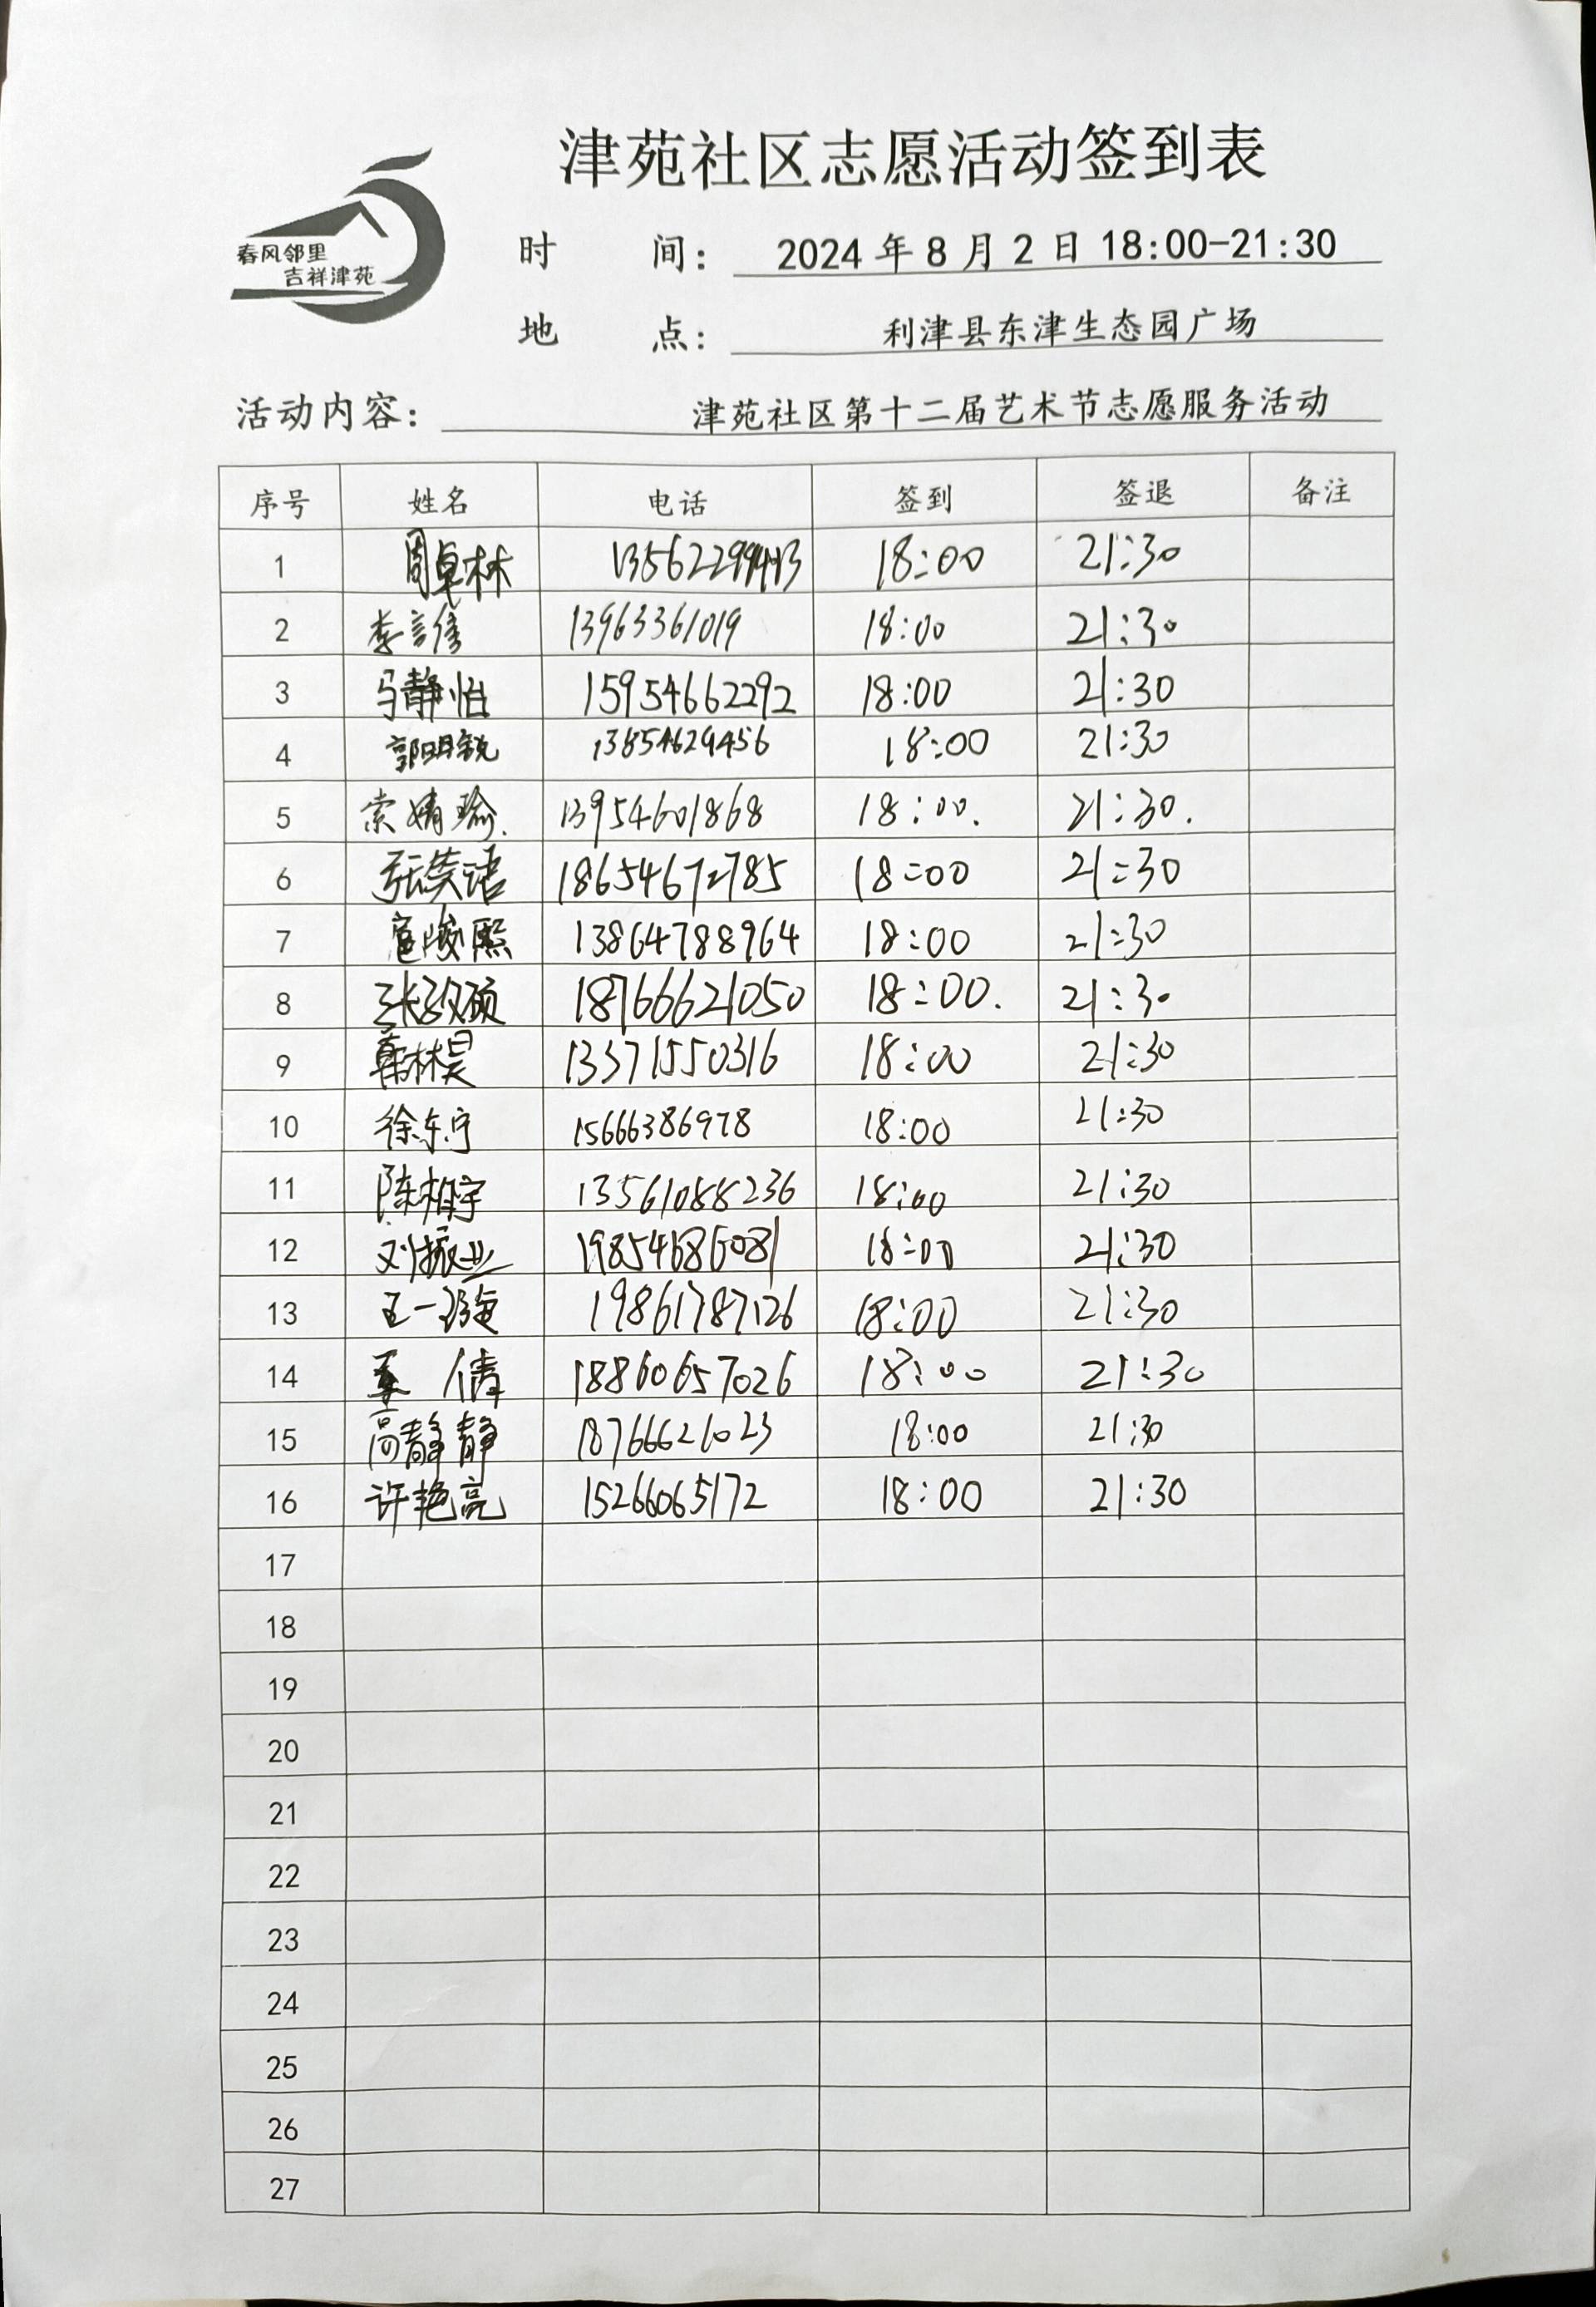 津苑社区志愿活动签到表
春风邻里
吉祥津苑
时 间: 2024年8月2日18:00-21:30
地 点: 利津县东津生态园广场
活动内容: 津苑社区第十二届艺术节志愿服务活动
序号 姓名 电话 签到 签退 备注
1 周卓林 18:00 21:30
2 李言信 13963361019 18:00 21:30
3 马静怡 15954662292 18:00 21:30
4 郭明锐 13854629456 18:00 21:30
5 索婧瑜. 13954601868 18:00. 21:30.
6 张荧诺 18654672785 18:00 21:30
7 扈峻熙 13864788964 18:00 21:30
8 张致硕 18766621050 18:00. 21:30
9 林昊 13371550316 18:00 21:30
10 徐东宁 15666386978 18:00 21:30
11 陈柏宇 13561088236 18:00 21:30
12 刘振业 19854686081 18:00 21:30
13 王一璇 19861787126 18:00 21:30
14 倩 18860657026 18:00 21:30
15 高静静 18766621023 18:00 21:30
16 许艳亮 15266065172 18:00 21:30
17
18
19
20
21
22
23
24
25
26
27